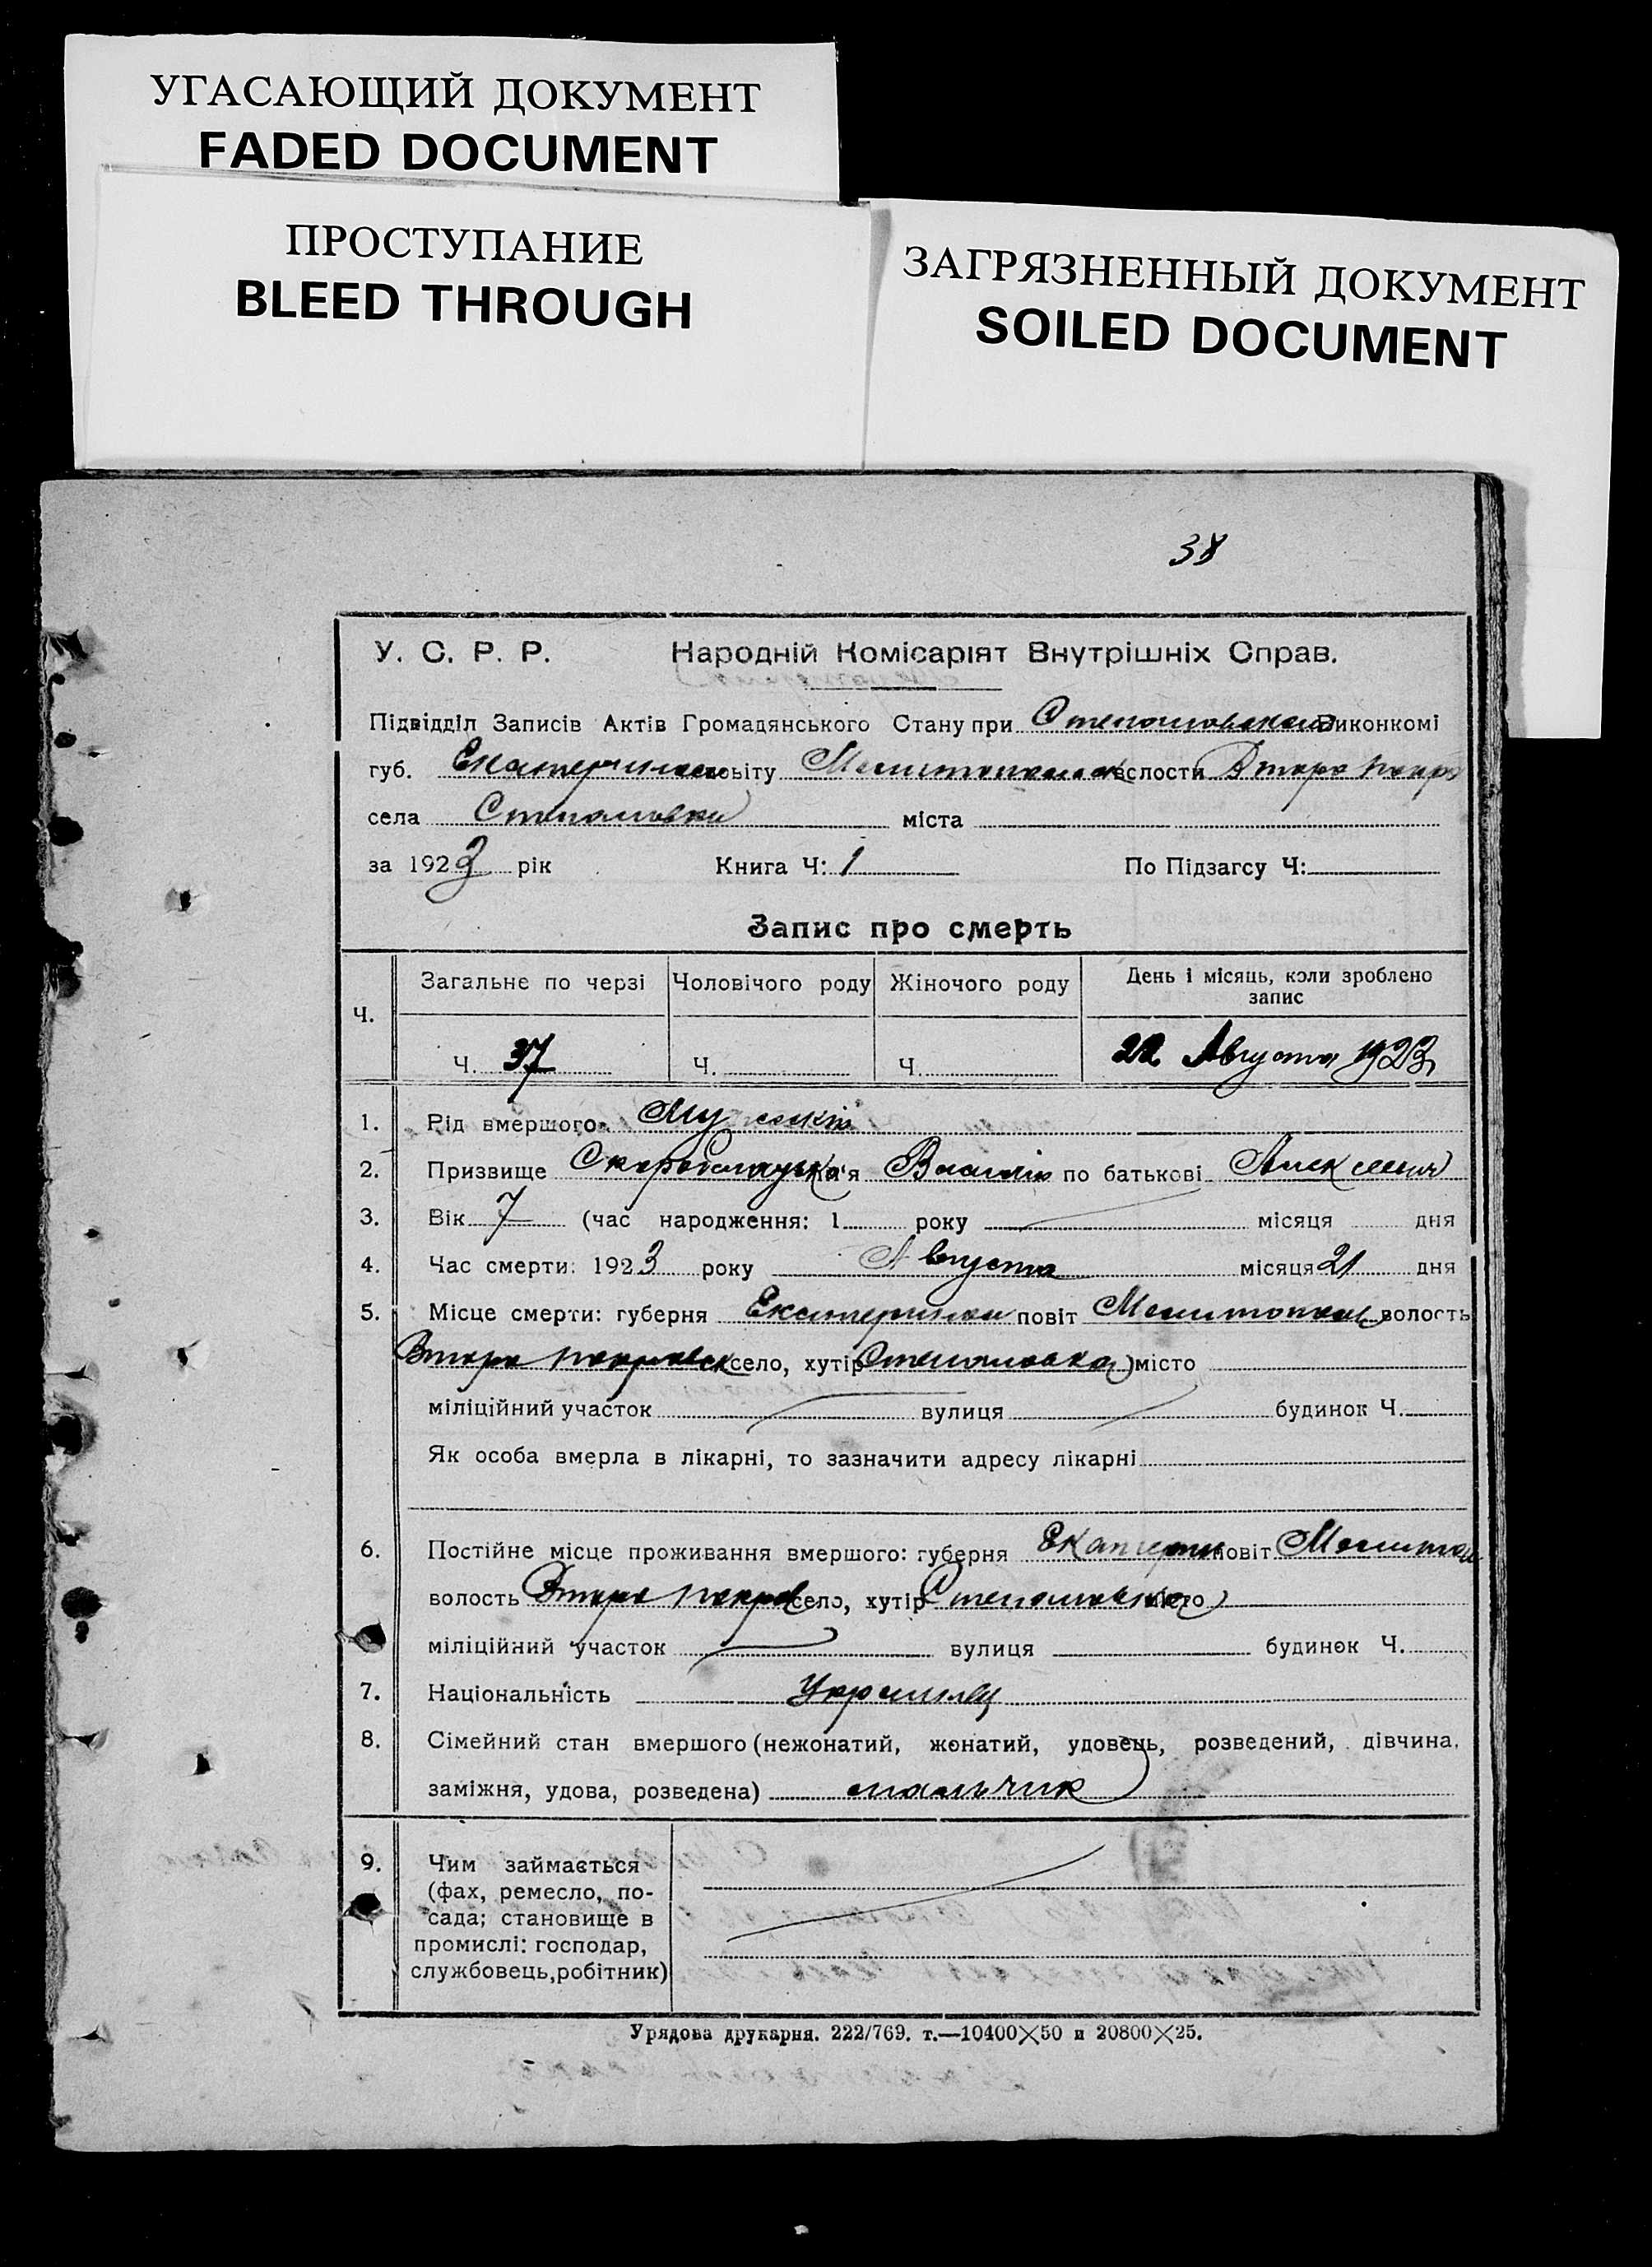 УГАСАЮЩИЙ ДОКУМЕНТ
FADED DOCUMENT
ПРОСТУПАНИЕ
BLEED THROUGH
ЗАГРЯЗНЕННЫЙ ДОКУМЕНТ
SOILED DOCUMENT
38
У. С. Р. Р. Народній Комісаріят Внутрішніх Справ.
Підвідділ Записів Актів Громадянського Стану при Степановском Виконкомі
губ. Екатеринос повіту Мелитопольск волости Второ покро
села Степановки міста
за 1923 рік Книга Ч: 1 По Підзагсу Ч:
Запис про смерть
Ч. Загальне по черзі Чоловічого роду Жіночого роду День і місяць, коли зроблено запис
Ч. 37 Ч. Ч. 22 Августа 1923
1. Рід вмершого Мужский
2. Призвище імʼя Василий по батькові Алексеевич
3. Вік 7 (час народження: 1 року місяця дня
4. Час смерти: 1923 року Августа місяця 21 дня
5. Місце смерти: губерня Екатеринос повіт Мелитополь волость
Второ покровск село, хутір Степановка місто
міліційний участок вулиця будинок Ч.
Як особа вмерла в лікарні, то зазначити адресу лікарні
6. Постійне місце проживання вмершого: губерня Екатерин повіт Мелитоп
волость Второ покров село, хутір Степановка місто
міліційний участок вулиця будинок Ч.
7. Національність Украинец
8. Сімейний стан вмершого (нежонатий, жонатий, удовець, розведений, дівчина,
заміжня, удова, розведена) мальчик
9. Чим займається
(фах, ремесло, по-
сада; становище в
промислі: господар,
службовець, робітник)
Урядова друкарня. 222/769. т.—10400×50 и 20800×25.